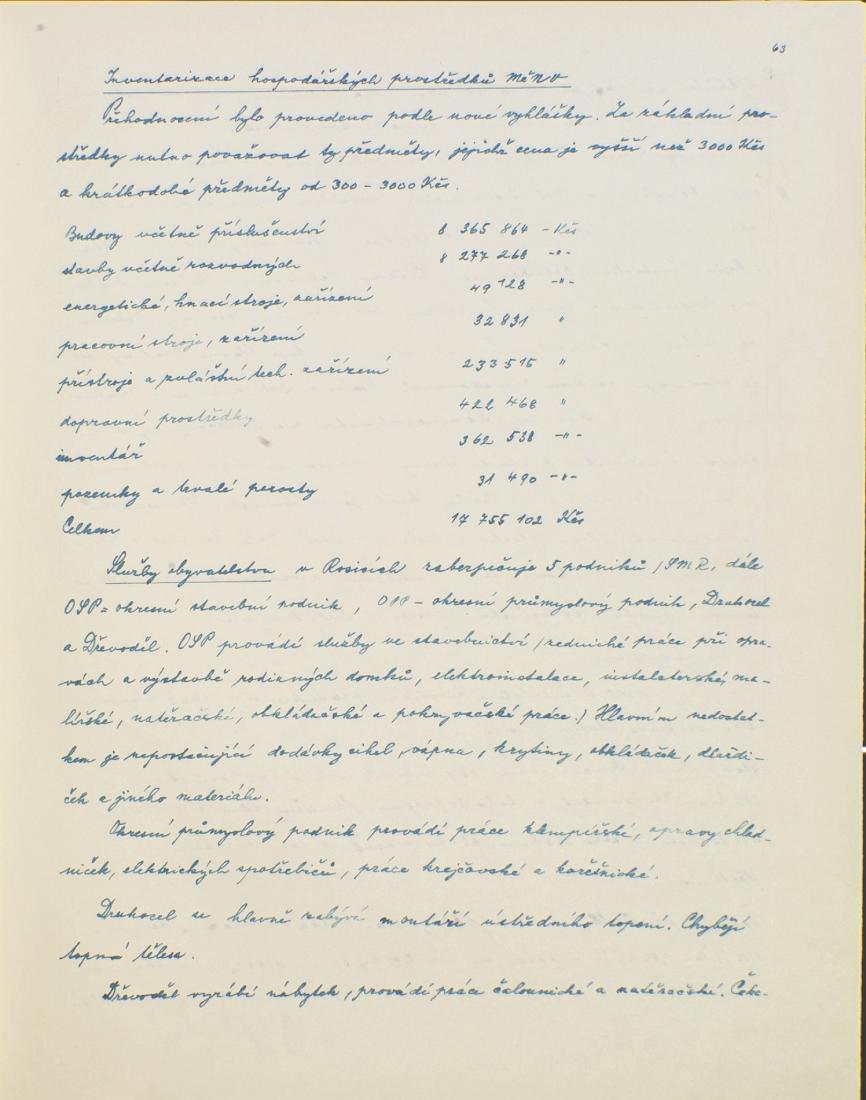 63
Inventarizace hospodářských prostředků MěNV
Přehodnocení bylo provedeno podle nové vyhlášky. Za základní pro-
středky nutno považovat ty předměty, jejichž cena je vyšší než 3000 Kčs
a krátkodobé předměty od 300 - 3000 Kčs.
Budovy včetně příslušenství 8 365 864 - Kčs
stavby včetně rozvodných 8 277 268 -"-
energetické, hnací stroje, zařízení 49 128 -"-
pracovní stroje, zařízení 32 831 "
přístroje a zvláštní tech. zařízení 233 515 "
dopravní prostředky 422 468 "
inventář 362 538 -"-
pozemky a trvalé porosty 31 490 -"-
Celkem 17 755 102 Kčs
Služby obyvatelstvu v Rosicích zabezpečuje 5 podniků /SMR, dále
OSP = okresní stavební podnik, OPP - okresní průmyslový podnik, Druhocel
a Dřevoděl. OSP provádí služby ve stavebnictví /zednické práce při opra-
vách a výstavbě rodinných domků, elektroinstalace, instalaterské, ma-
lířské, natěračské, obkládačské a pokryvačské práce./ Hlavním nedostat-
kem je nepostačující dodávky cihel, vápna, krytiny, obkládaček, dlaždi-
ček a jiného materiálu.
Okresní průmyslový podnik provádí práce klempířské, opravy chlad-
niček, elektrických spotřebičů, práce krejčovské a kožešnické.
Druhocel se hlavně zabývá montáží ústředního topení. Chybějí
topná tělesa.
Dřevoděl vyrábí nábytek, provádí práce čalounické a natěračské. Čeke-